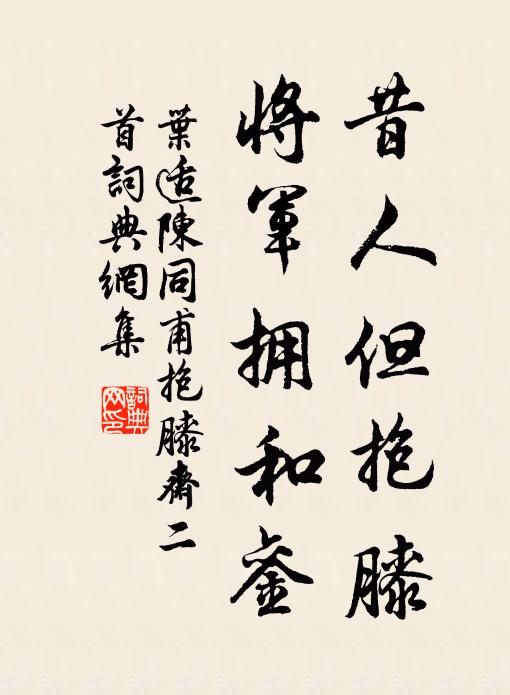 昔人但抱膝
將軍拥和銮
葉适陳同甫抱膝齋二
首詞典網集
詞典
网印